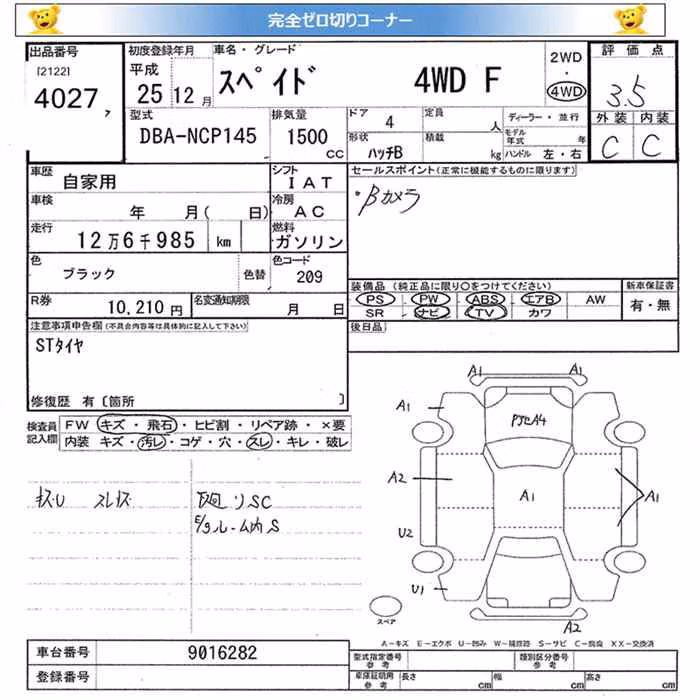 完全ゼロ切りコーナー
出品番号 初度登録年月 車名・グレード 評価点
[2122] 平成 スペイド 4WD F 2WD
・
4027 ァ 25 12月 4WD 3.5
型式 排気量 ドア 4 定員 人 ディーラー・並行 外装 内装
DBA-NCP145 1500 CC 形状 ハッチB 積載 kg モデル年式 年 C C
ハンドル 左・右
車歴 自家用 シフト IAT セールスポイント(正常に機能するものに限ります)
車検 年 月( 日) 冷房 AC ・Bカメラ
走行 12万6千985 km 燃料 ガソリン
色 ブラック 色替 色コード 209
装備品 (純正品に限り○をつけてください) 新車保証書
R券 10,210円 名変通知期限 月 日 PS PW ABS エアB AW 有・無
SR ナビ TV カワ
注意事項申告欄(不具合内容等は具体的に記入して下さい) 後日品
STタイヤ
修復歴 有〔箇所 〕
検査員記入欄 FW キズ・飛石・ヒビ割・リペア跡・×要
内装 キズ・汚レ・コゲ・穴・スレ・キレ・破レ
キズU スレキズ 下廻りSC
E/gルーム内S
A1 A1
A1
A4
A2 A1 A1
U2
U1
スペア A2
A-キズ E-エクボ U-凹み W-補修跡 S-サビ C-腐食 XX-交換済
車台番号 9016282 型式指定番号 参考 類別区分番号 参考
登録番号 車庫証明用 参考 長さ cm 幅 cm 高さ cm